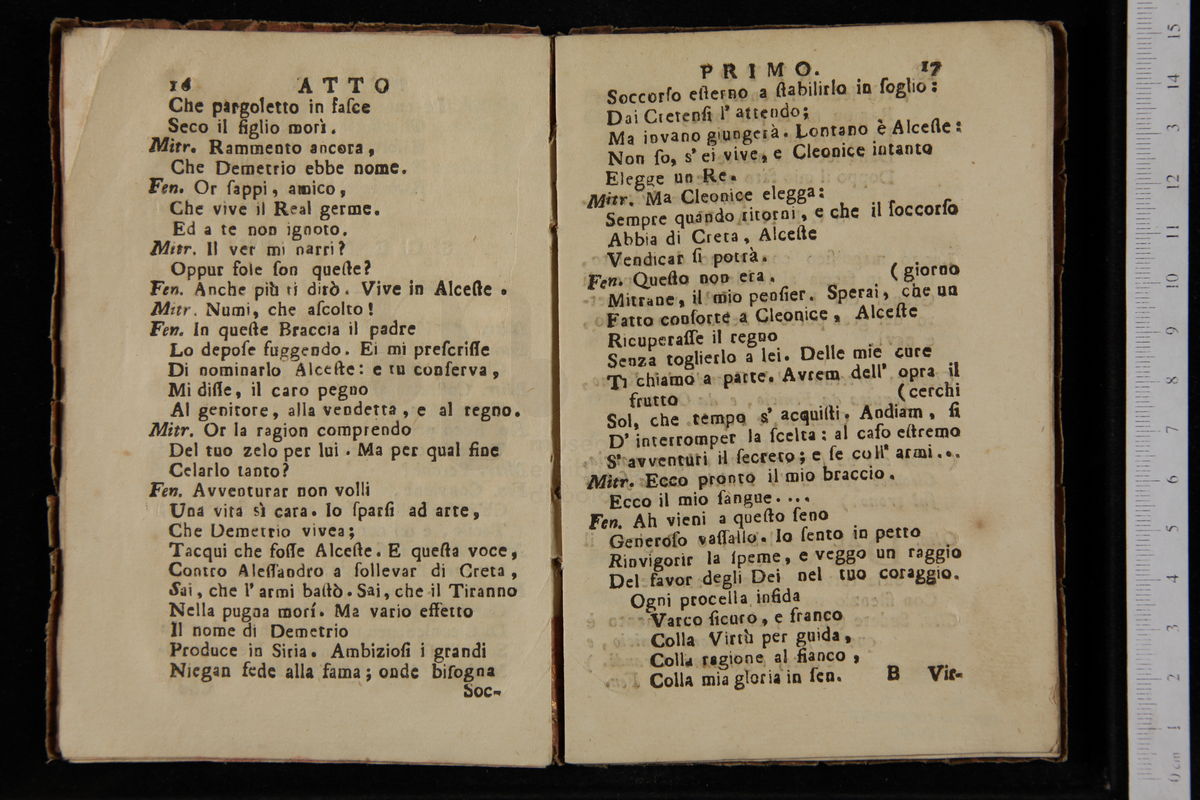 16 ATTO
Che pargoletto in faſce
Seco il figlio morì.
Mitr. Rammento ancora,
Che Demetrio ebbe nome.
Fen. Or ſappi, amico,
Che vive il Real germe.
Ed a te non ignoto.
Mitr. Il ver mi narri?
Oppur fole ſon queſte?
Fen. Anche più ti dirò. Vive in Alceſte.
Mitr. Numi, che aſcolto!
Fen. In queſte Braccia il padre
Lo depoſe fuggendo. Ei mi preſcriſſe
Di nominarlo Alceſte: e tu conſerva,
Mi diſſe, il caro pegno
Al genitore, alla vendetta, e al regno.
Mitr. Or la ragion comprendo
Del tuo zelo per lui. Ma per qual fine
Celarlo tanto?
Fen. Avventurar non volli
Una vita sì cara. Io ſparſi ad arte,
Che Demetrio vivea;
Tacqui che foſſe Alceſte. E queſta voce,
Contro Aleſſandro a ſollevar di Creta,
Sai, che l'armi baſtò. Sai, che il Tiranno
Nella pugna morí. Ma vario effetto
Il nome di Demetrio
Produce in Siria. Ambizioſi i grandi
Niegan fede alla fama; onde biſogna
Soc-
PRIMO. 17
Soccorſo eſterno a ſtabilirlo in ſoglio:
Dai Cretenſi l'attendo;
Ma invano giungerà. Lontano è Alceſte:
Non ſo, s'ei vive, e Cleonice intanto
Elegge un Re.
Mitr. Ma Cleonice elegga:
Sempre quando ritorni, e che il ſoccorſo
Abbia di Creta, Alceſte
Vendicar ſi potrà.
Fen. Queſto non era. (giorno
Mitrane, il mio penſier. Sperai, che un
Fatto conſorte a Cleonice, Alceſte
Ricuperaſſe il regno
Senza toglierlo a lei. Delle mie cure
Ti chiamo a parte. Avrem dell' opra il
frutto (cerchi
Sol, che tempo s' acquiſti. Andiam, ſi
D' interromper la ſcelta: al caſo eſtremo
S' avventuri il ſecreto; e ſe coll' armi...
Mitr. Ecco pronto il mio braccio.
Ecco il mio ſangue....
Fen. Ah vieni a queſto ſeno
Generoſo vaſſallo. Io ſento in petto
Rinvigorir la ſpeme, e veggo un raggio
Del favor degli Dei nel tuo coraggio.
Ogni procella infida
Varco ſicuro, e franco
Colla Virtù per guida,
Colla ragione al fianco,
Colla mia gloria in ſen.
B Vir-
0 cm 1 2 3 4 5 6 7 8 9 10 11 12 13 14 15